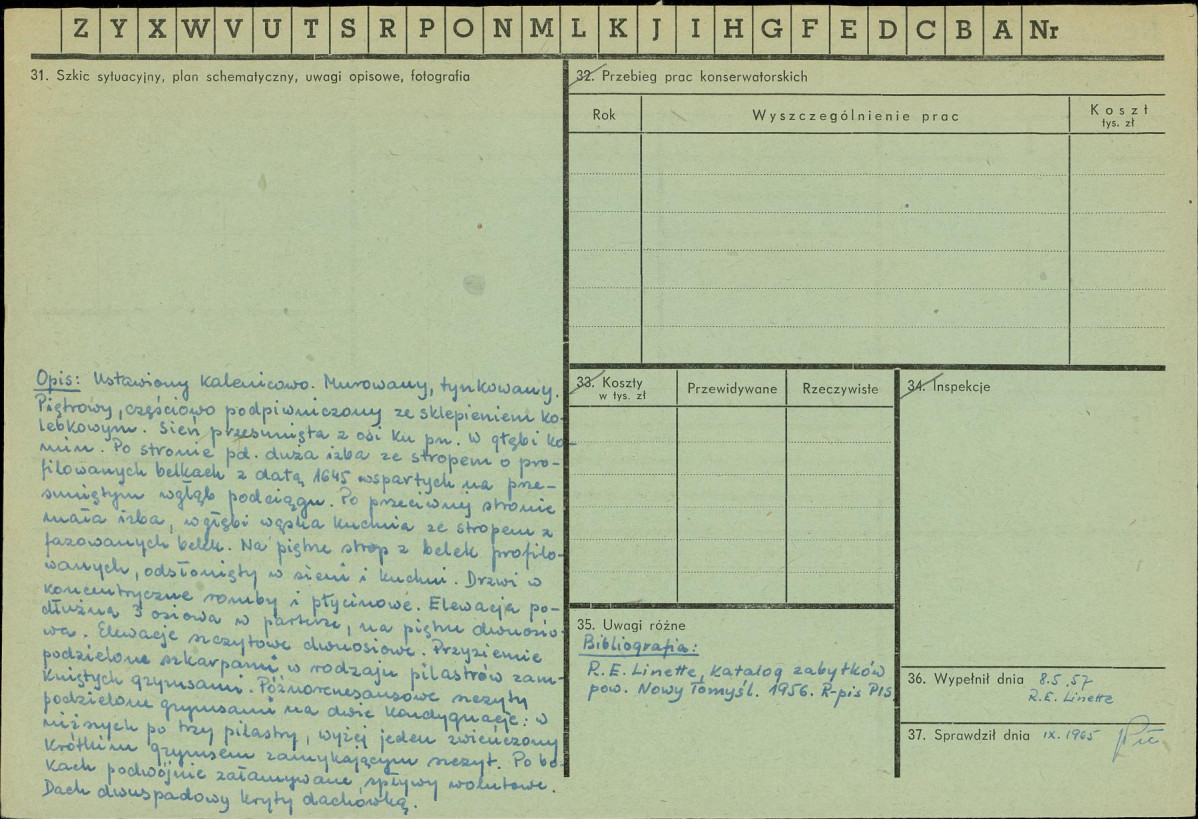 Z Y X W V U T S R P O N M L K J I H G F E D C B A Nr
31. Szkic sytuacyjny, plan schematyczny, uwagi opisowe, fotografia
Opis: Ustawiony kalenicowo. Murowany, tynkowany.
Piętrowy, częściowo podpiwniczony ze sklepieniem ko-
lebkowym. Sień przesunięta z osi ku pn. W głębi ko-
min. Po stronie pd. duża izba ze stropem o pro-
filowanych belkach z datą 1645 wspartych na prze-
suniętym wgłąb podciągu. Po przeciwnej stronie
mała izba, w głębi wąska kuchnia ze stropem z
fazowanych belek. Na piętrze strop z belek profilo-
wanych, odsłonięty w sieni i kuchni. Drzwi w
koncentryczne romby i płycinowe. Elewacja po-
dłużna 3 osiowa w parterze, na piętrze dwuosio-
wa. Elewacje szczytowe dwuosiowe. Przyziemie
podzielone szkarpami w rodzaju pilastrów zam-
kniętych gzymsami. Późnorenesansowe szczyty
podzielone gzymsami na dwie kondygnacje: w
niższych po trzy pilastry, wyżej jeden zwieńczony
krótkim gzymsem zamykającym szczyt. Po bo-
kach podwójnie załamywane spływy wolutowe.
Dach dwuspadowy kryty dachówką.
32. Przebieg prac konserwatorskich
Rok Wyszczególnienie prac Koszt
tys. zł
33. Koszty
w tys. zł
Przewidywane Rzeczywiste
34. Inspekcje
35. Uwagi różne
Bibliografia:
R.E. Linette, katalog zabytków
pow. Nowy Tomyśl. 1956. R-pis PIS
36. Wypełnił dnia 8.5.57
R.E. Linette
37. Sprawdził dnia IX.1965